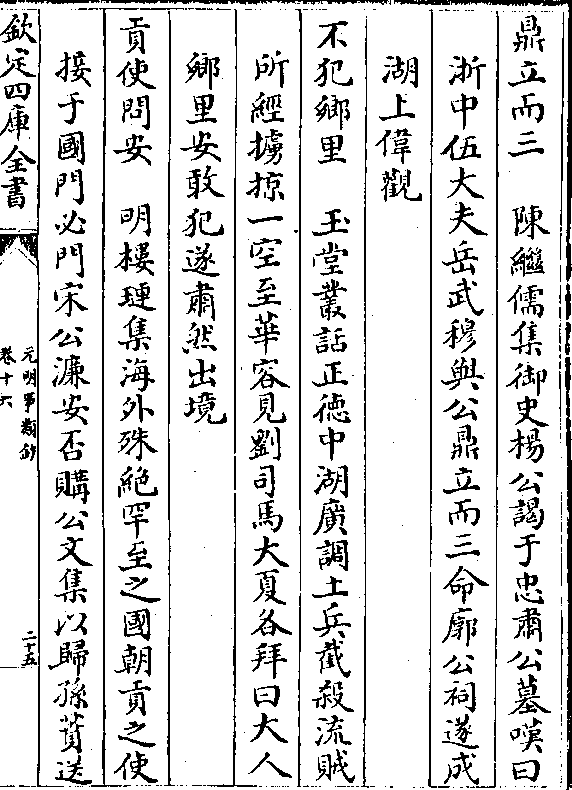 鼎立而三　陳繼儒集御史楊公謁于忠肅公墓嘆曰
浙中伍大夫岳武穆與公鼎立而三命廓公祠遂成
湖上偉觀
不犯鄉里　玉堂叢話正徳中湖廣調土兵截殺流賊
所經擄掠一空至華容見劉司馬大夏各拜曰大人
鄉里安敢犯遂肅然出境
貢使問安　明樓璉集海外殊絶罕至之國朝貢之使
接于國門必問宋公濂安否購公文集以歸孫蕡送
欽定四庫全書
元明事類鈔
卷十六
二十五